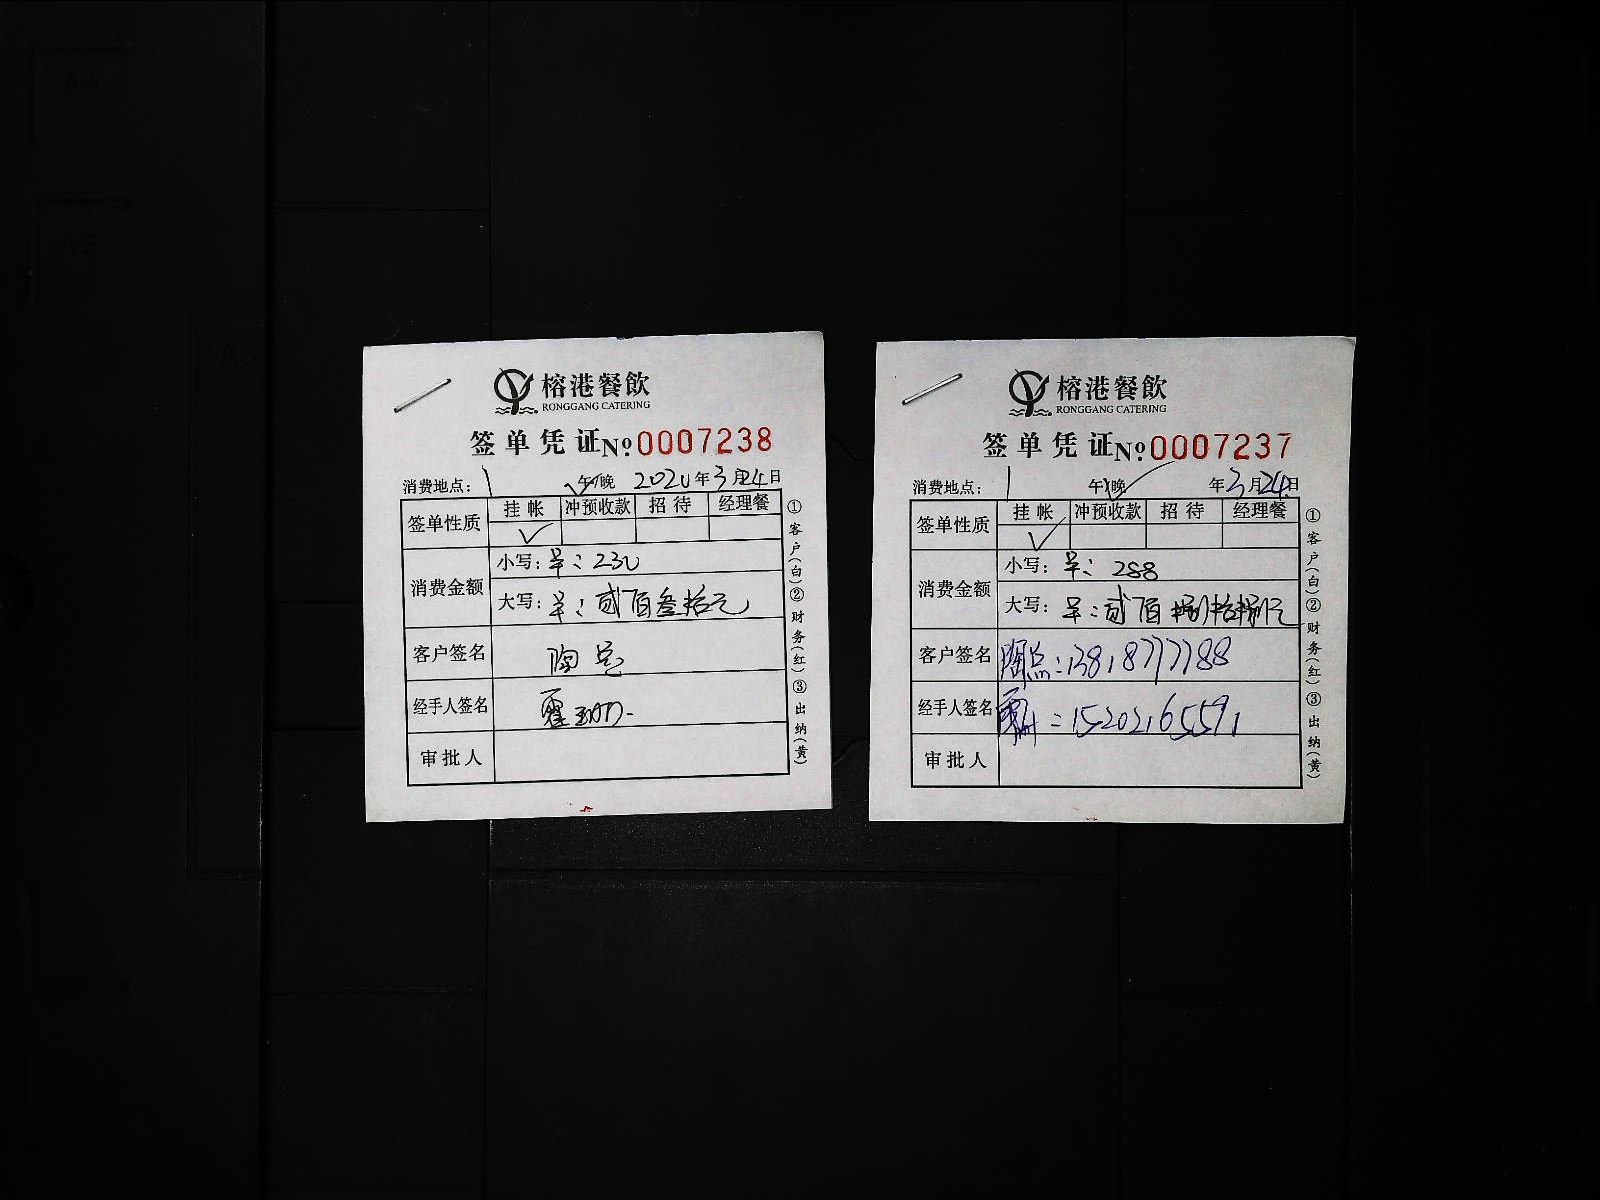 榕港餐飲
RONGGANG CATERING
签单凭证№0007238
消费地点： 午/晚 2020年3月24日
签单性质 挂帐 冲预收款 招待 经理餐
消费金额 小写： 230
大写： 贰佰叁拾元
客户签名 陶总
经手人签名
审批人
①客户(白)②财务(红)③出纳(黄)
榕港餐飲
RONGGANG CATERING
签单凭证№0007237
消费地点： 午/晚 年3月24日
签单性质 挂帐 冲预收款 招待 经理餐
消费金额 小写： 288
大写： 贰佰捌拾捌元
客户签名 陶总：13818777788
经手人签名 ：15202165591
审批人
①客户(白)②财务(红)③出纳(黄)